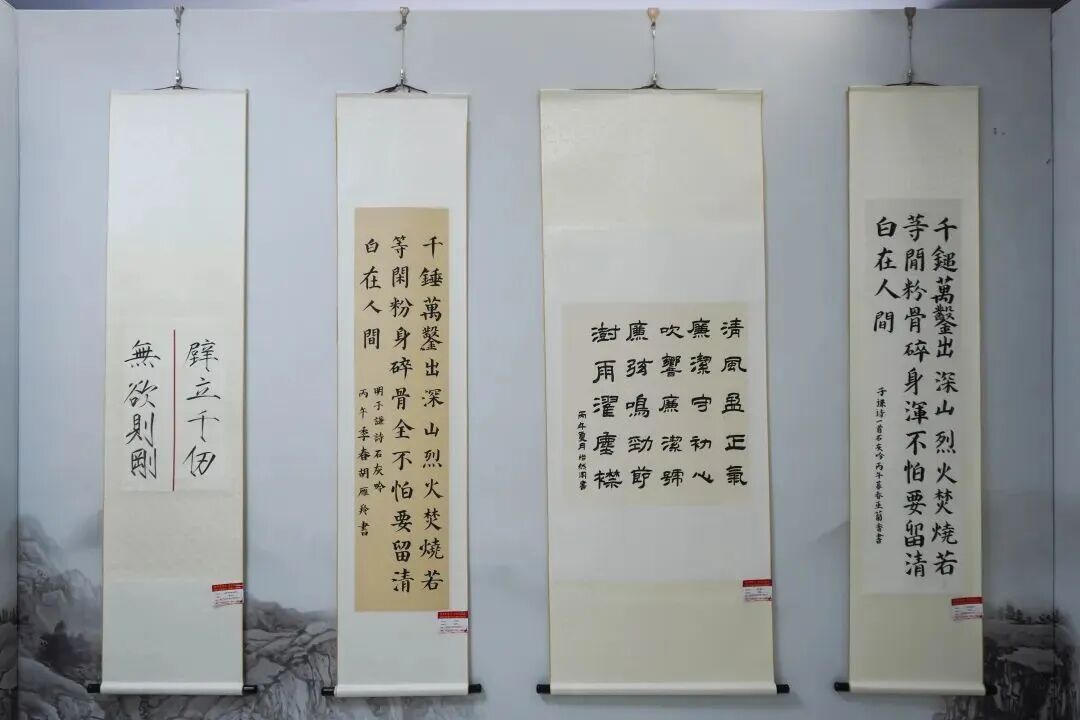 壁立千仞
無欲則剛
千錘萬鑿出深山烈火焚燒若
等閑粉身碎骨全不怕要留清
白在人間
明于謙詩石灰吟
丙午季春胡雁玲書
清風盈正氣
廉潔守初心
吹響廉潔號
廉弦鳴勁節
澍雨濯塵襟
丙午夏月
千鎚萬鑿出深山烈火焚燒若
等閒粉骨碎身渾不怕要留清
白在人間
于謙詩一首石灰吟丙午暮春